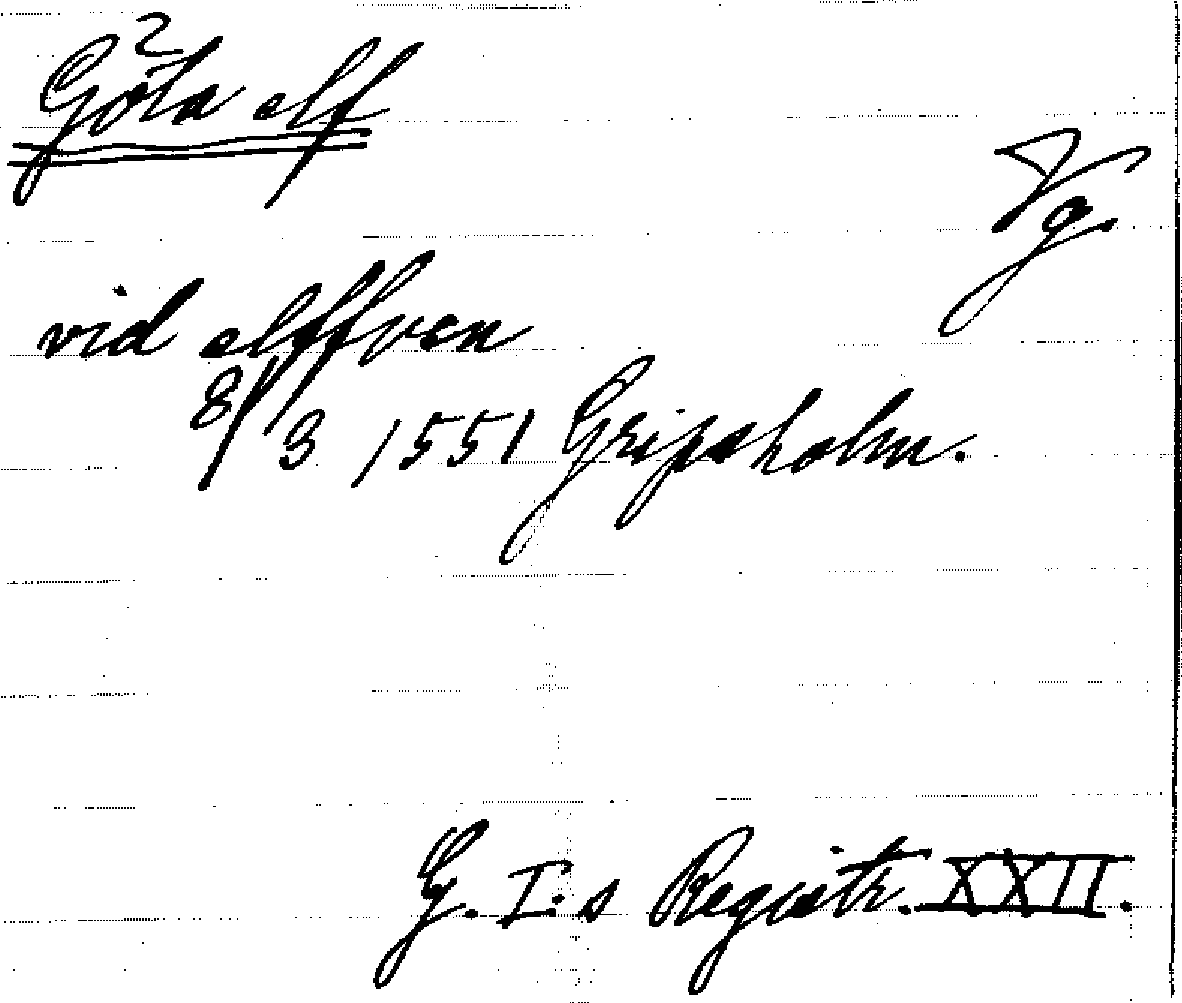 Göta elf
Vg.
vid elffven
8/3 1551 Gripsholm.
G. I:s Registr. XXII.